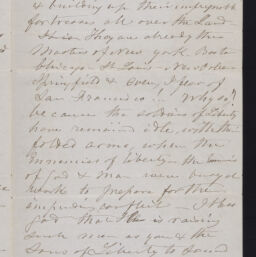 & building up their
fortresses all over the Land
They are already the
Masters of New York Bosto
Chicago St. Louis New Orlea
Springfield & even, I hear of
San Francisco!! Why so?
because the soldiers of Liberty
have remained idle, with the
folded arms, when the
enemies of liberty the
of God & man were busy at
work to prepare for the
impending conflict. I bless
God that He is raising
such men as you & the
Sons of Liberty to